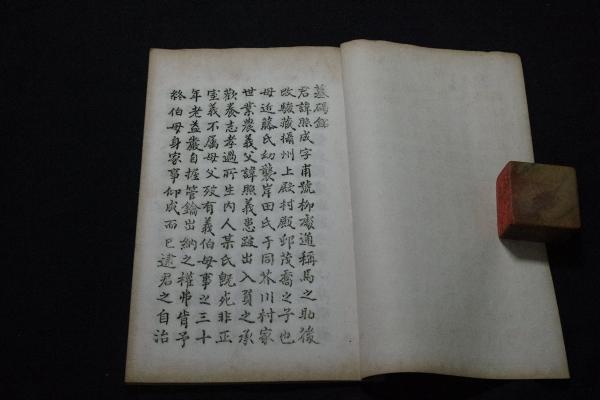 墓碣銘
君諱照成字甫號柳處通稱馬之助後
改駿藏攝州上殿村殿邨茂喬之子也
母近藤氏幼襲岸田氏于同芥川村家
世業農義父諱照義患跛出入負之承
歡養志孝過所生内人某氏旣死非正
室義不属母父歿有義伯母事之三十
年老益嚴自握管鑰出納之權弗肯予
終伯母身家事仰成而已逮君之自治